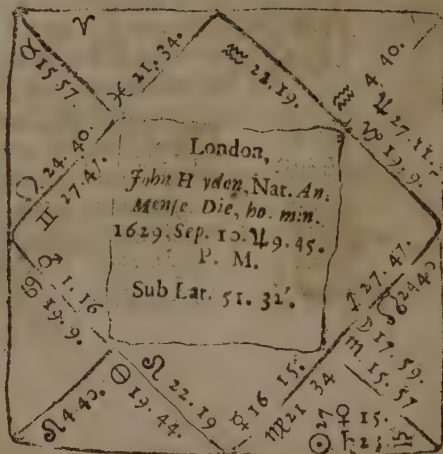 ♈
♉ 15. 57.
♓ 21. 34.
♒ 22. 19.
♒ 4. 40.
♃ 27. 11.
♑ 19. 9.
☊ 24. 40.
♊ 27. 47.
London,
John Hyden, Nat. An.
Mense Die, ho. min.
1629. Sep. 10. ♃ 9. 45.
P. M.
Sub Lat. 51. 32'.
♂ 1. 16
♋ 19. 9.
♐ 27. 47.
☋ 24. 40
☽ 17. 59.
♏ 15. 57
♌ 4. 40.
♌ 22. 19
⊕ 19. 44.
☿ 16 15.
♍ 21 34
☉ 27
♀ 15.
♄ 23
♎